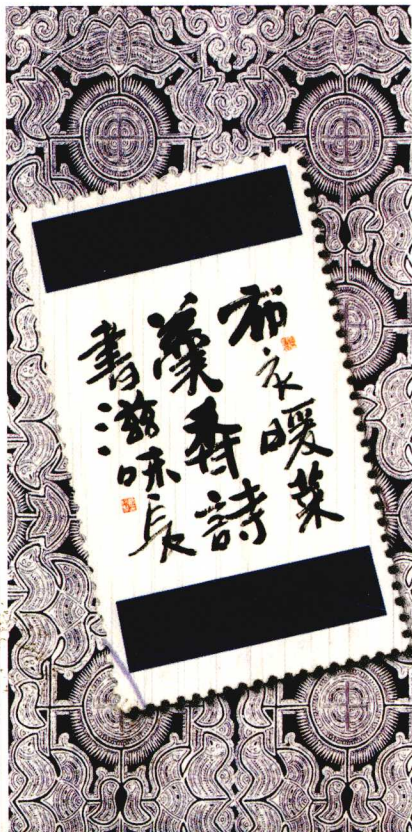 布衣暖菜
羹香詩
書滋味長